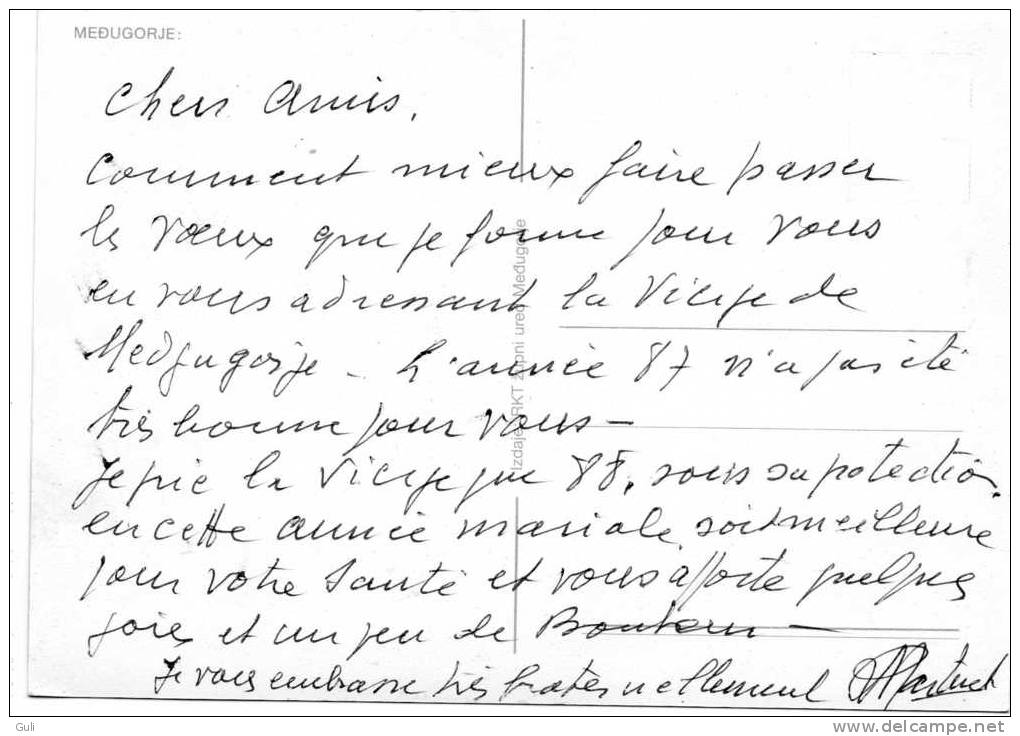 MEĐUGORJE:
Chers Amis,
Comment mieux faire passer
les vœux que je forme pour vous
en vous adressant la Vierge de
Medjugorje - L'année 87 n'a pas été
très bonne pour vous -
Je prie la Vierge que 88, sous sa protection,
en cette année mariale, soit meilleure
pour votre santé et vous apporte quelques
joies et un peu de
Je vous embrasse très fraternellement
Izdaje: RKT župni ured Međugorje
Guli
delcampe.net